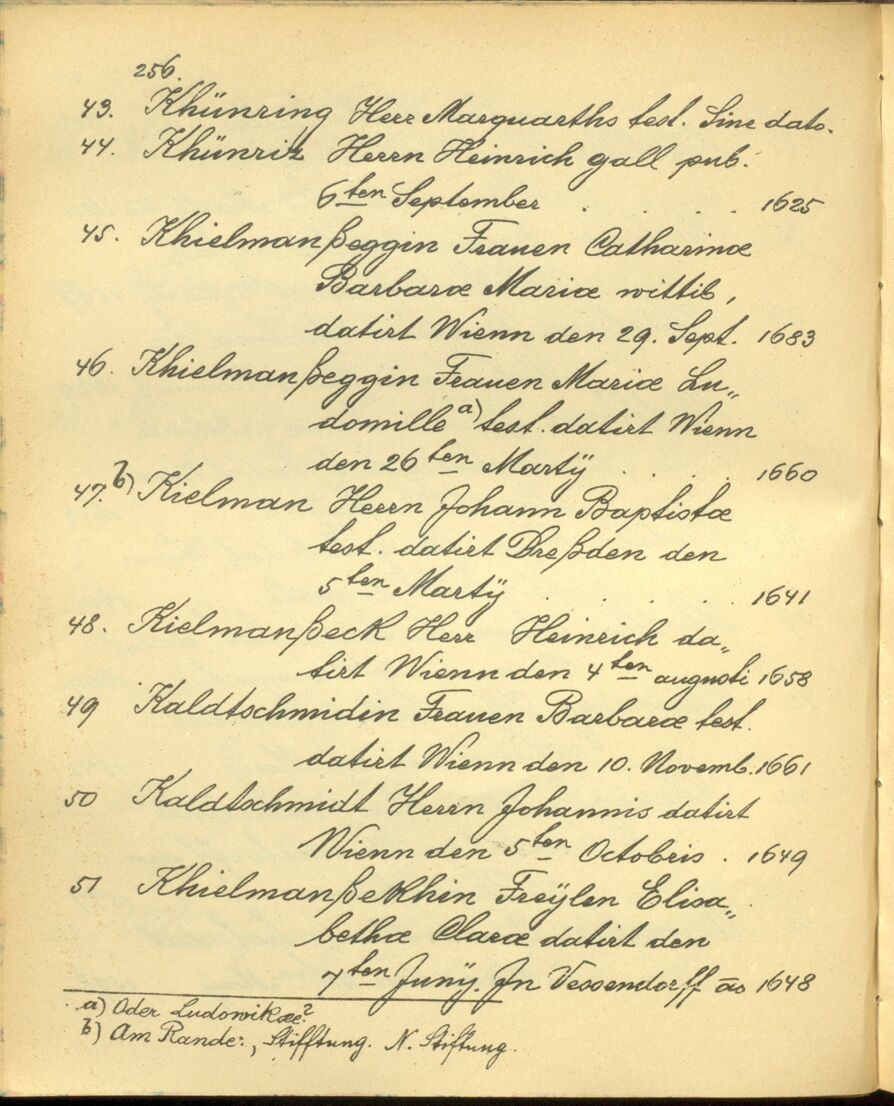 256.
43. Khünring Herr Marquarths test. Sine dato.
44. Khünriz Herrn Heinrich gall pub.
6ten September . . . . 1625
45. Khielmanßeggin Frauen Catharinæ
Barbaræ Mariæ wittib,
datirt Wienn den 29. Sept. 1683
46. Khielmanßeggin Frauen Mariæ Lu„
domille a) test. datirt Wienn
den 26ten Martÿ . . . 1660
47. b) Kielman Herrn Johann Baptistæ
test. datirt Dreßden den
5ten Martÿ . . . . . 1641
48. Kielmanßeck Herr Heinrich da„
tirt Wienn den 4ten augusti 1658
49 Kaldtschmidin Frauen Barbaræ test.
datirt Wienn den 10. Novemb. 1661
50 Kaldtschmidt Herrn Johannis datirt
Wienn den 5ten Octobris . 1649
51 Khielmanßekhin Freÿlen Elisa„
bethæ Claræ datirt den
7ten Junÿ. In Vessendorff āo 1648
a) Oder Ludowikæ?
b) Am Rande: , Stifftung. N. Stiftung.